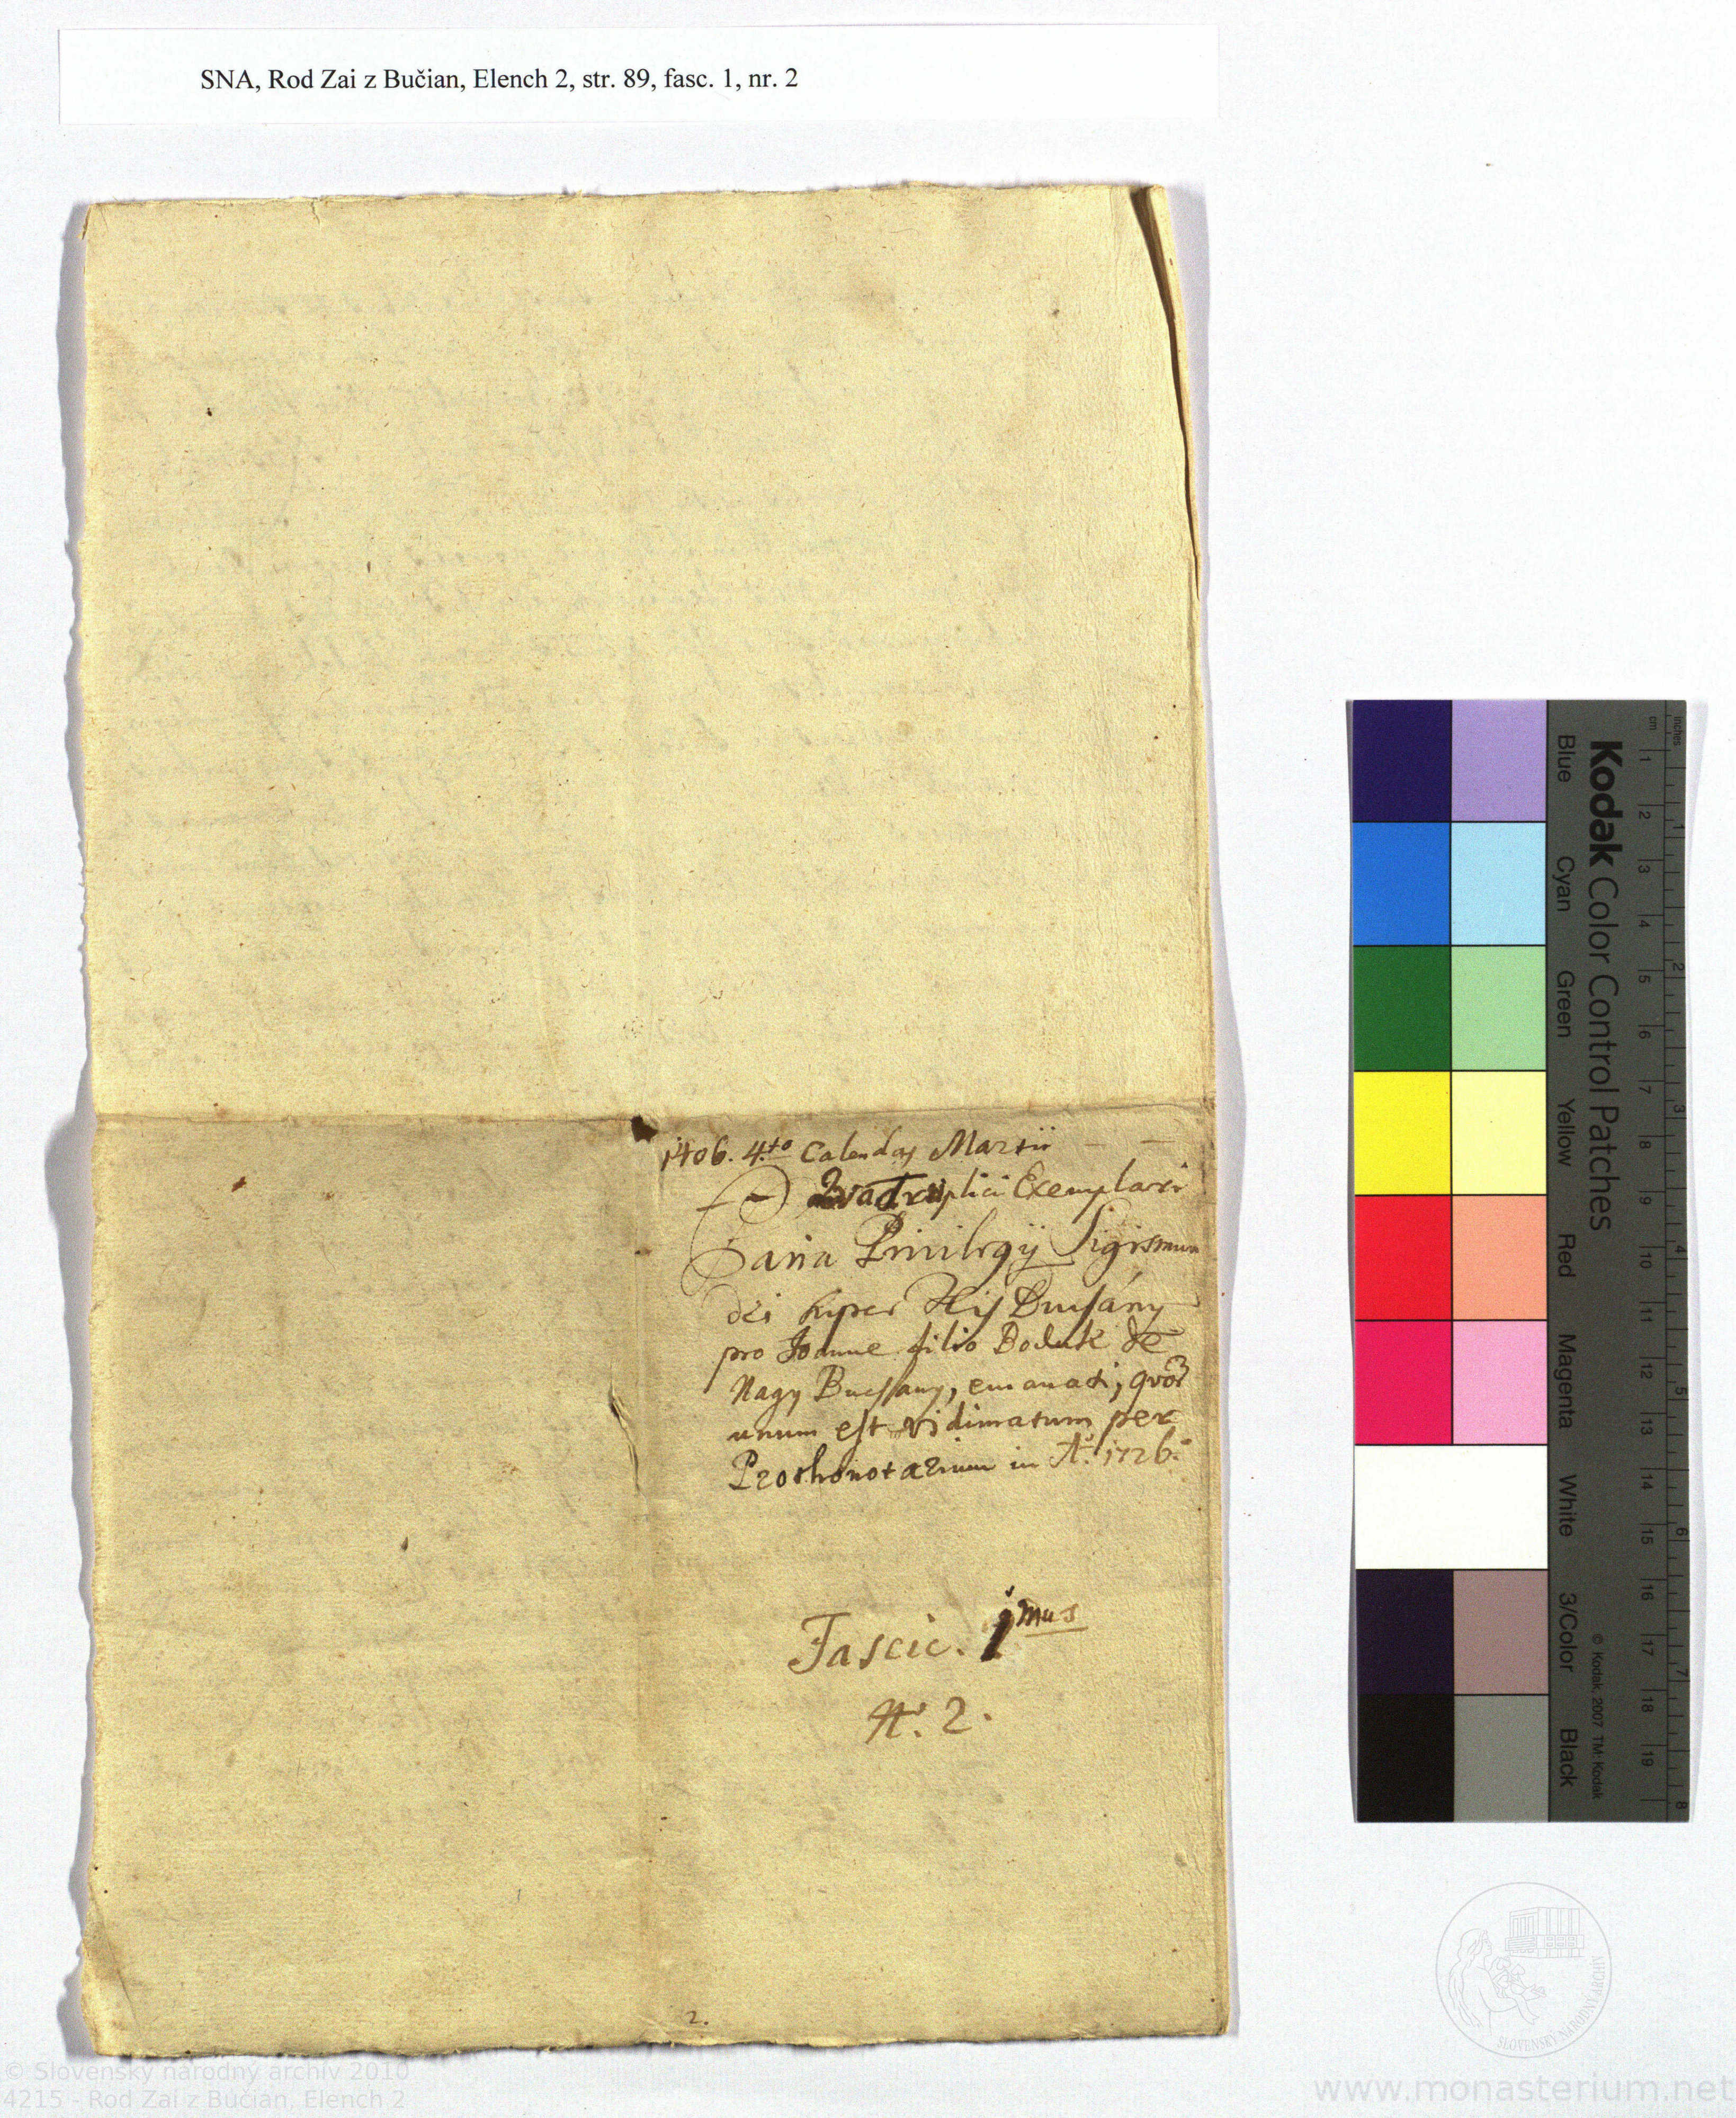 SNA, Rod Zai z Bučian, Elench 2, str. 89, fasc. 1, nr. 2
1406. 4to Calendas Martii
Quadruplici Exemplari
Paria Privilegij Sigismun
dei super Kis Bucsány
pro Joanne filio Boduk de
Nagy Bucsany, emanati, qvor
unum est vidimatum per
Prothonotarium in Ao. 1726.
Fascic. 1mus
N. 2.
2.
inches
cm
1 2 3 4 5 6 7 8 9 10 11 12 13 14 15 16 17 18 19
1 2 3 4 5 6 7 8
Kodak Color Control Patches
© Kodak, 2007 TM: Kodak
Blue Cyan Green Yellow Red Magenta White 3/Color Black
SLOVENSKÝ NÁRODNÝ ARCHÍV
© Slovenský národný archív 2010
4215 - Rod Zai z Bučian, Elench 2
www.monasterium.net